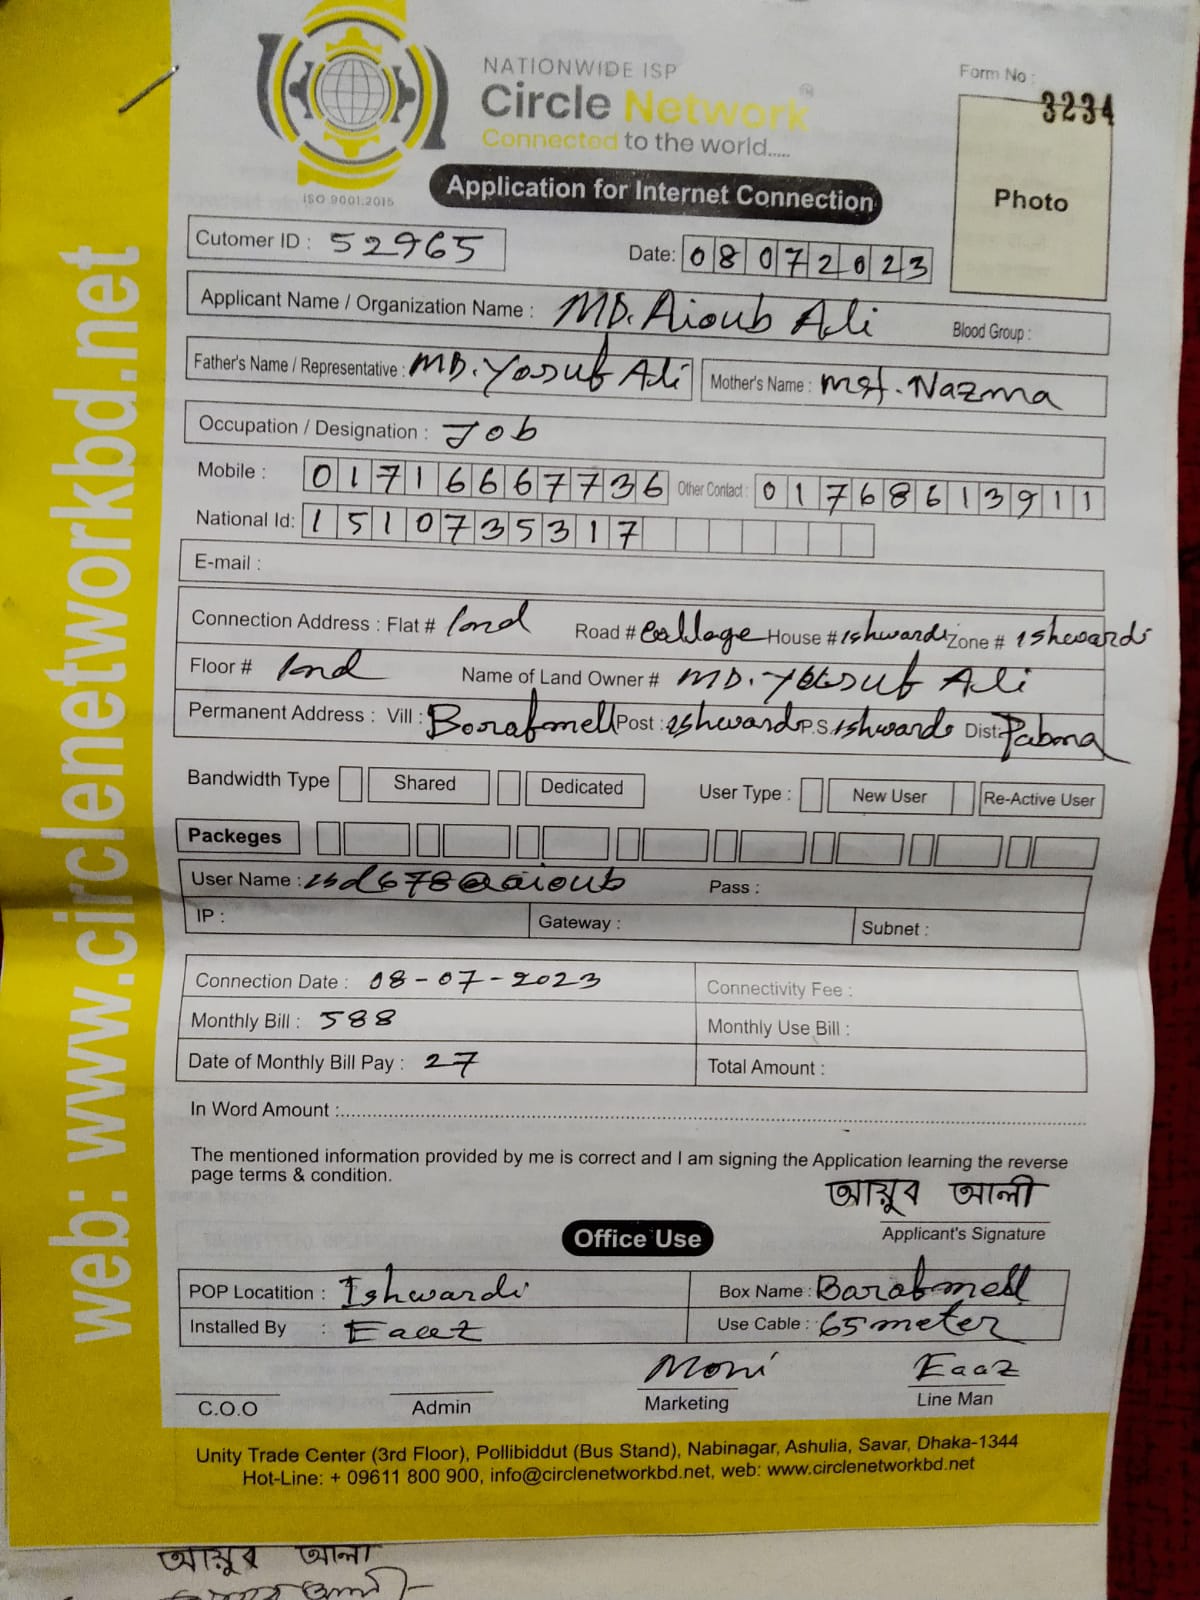 NATIONWIDE ISP
Circle Network
Connected to the world.....
ISO 9001:2015
Form No : 3234
Photo
Application for Internet Connection
Cutomer ID : 52965 Date: 08072023
Applicant Name / Organization Name : MD. Aioub Ali Blood Group :
Father's Name / Representative : MD. Yosuf Ali Mother's Name : Mst. Nazma
Occupation / Designation : Job
Mobile : 01716667736 Other Contact : 01768613911
National Id: 1510735317
E-mail :
Connection Address : Flat # Road # House # Ishwardi Zone # Ishwardi
Floor # Name of Land Owner # MD. Yousuf Ali
Permanent Address : Vill : Post : Ishwardi P.S. Ishwardi Dist: Pabna
Bandwidth Type Shared Dedicated User Type : New User Re-Active User
Packeges
User Name : isd678@aioub Pass :
IP : Gateway : Subnet :
Connection Date : 08-07-2023 Connectivity Fee :
Monthly Bill : 588 Monthly Use Bill :
Date of Monthly Bill Pay : 27 Total Amount :
In Word Amount :
The mentioned information provided by me is correct and I am signing the Application learning the reverse
page terms & condition.
আয়ুব আলী
Applicant's Signature
Office Use
POP Locatition : Ishwardi Box Name :
Installed By : Use Cable : 65 meter
Moni Eaaz
C.O.O Admin Marketing Line Man
Unity Trade Center (3rd Floor), Pollibiddut (Bus Stand), Nabinagar, Ashulia, Savar, Dhaka-1344
Hot-Line: + 09611 800 900, info@circlenetworkbd.net, web: www.circlenetworkbd.net
web: www.circlenetworkbd.net
আয়ুব আলী